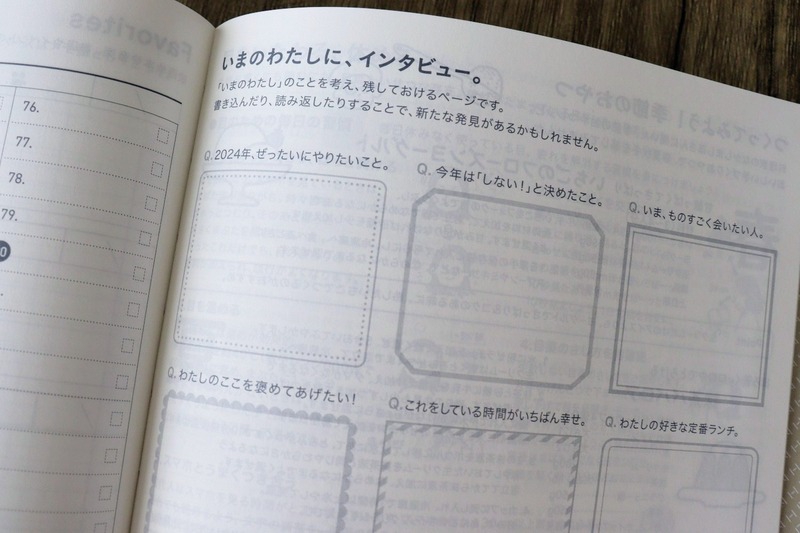 76.
77.
78.
79.
いまのわたしに、インタビュー。
「いまのわたし」のことを考え、残しておけるページです。
書き込んだり、読み返したりすることで、新たな発見があるかもしれません。
Q. 2024年、ぜったいにやりたいこと。
Q. 今年は「しない!」と決めたこと。
Q. いま、ものすごく会いたい人。
Q. わたしのここを褒めてあげたい!
Q. これをしている時間がいちばん幸せ。
Q. わたしの好きな定番ランチ。